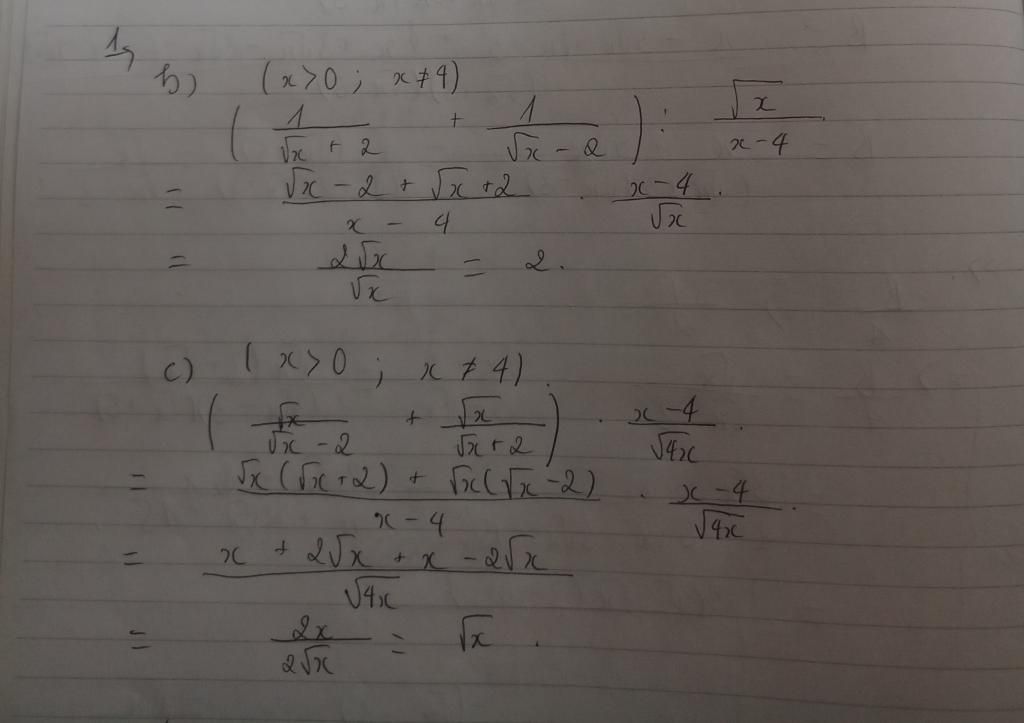 1,
b) (x>0 ; x≠4)
( 1/(√x + 2) + 1/(√x - 2) ) : √x/(x-4)
= (√x - 2 + √x + 2)/(x - 4) . (x-4)/√x .
= 2√x/√x = 2.
c) ( x>0 ; x ≠ 4) .
( √x/(√x - 2) + √x/(√x + 2) ) . (x-4)/√4x .
= (√x (√x + 2) + √x (√x - 2))/(x - 4) . (x-4)/√4x .
= (x + 2√x + x - 2√x)/√4x
= 2x/2√x = √x .